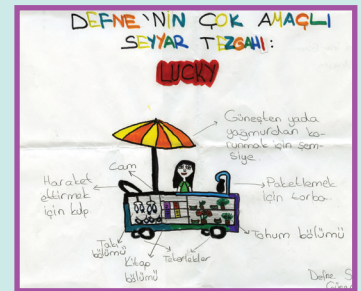 DEFNE'NİN ÇOK AMAÇLI
SEYYAR TEZGAHI:
LUCKY
Güneşten yada
yağmurdan ko-
runmak için şem-
siye
Cam
Haraket
ettirmek
için kulp
Paketlemek
için torba
Tohum bölümü
Takı
bölümü
Kitap
bölümü
Tekerlekler
Defne S